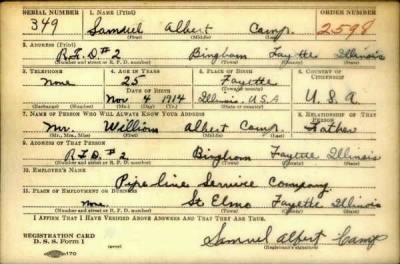 SERIAL NUMBER 1. NAME (Print) ORDER NUMBER
349 Samuel Albert Camp 2598
(First) (Middle) (Last)
2. ADDRESS (Print)
R.F.D #2 Bingham Fayette Illinois
(Number and street or R. F. D. number) (Town) (County) (State)
3. TELEPHONE 4. AGE IN YEARS 5. PLACE OF BIRTH 6. COUNTRY OF CITIZENSHIP
None 25 Fayette
(Town or county)
DATE OF BIRTH
Nov 4 1914 Illinois, U.S.A U.S.A
(Exchange) (Number) (Mo.) (Day) (Yr.) (State or country)
7. NAME OF PERSON WHO WILL ALWAYS KNOW YOUR ADDRESS 8. RELATIONSHIP OF THAT PERSON
Mr. William Albert Camp Father
(Mr., Mrs., Miss) (First) (Middle) (Last)
9. ADDRESS OF THAT PERSON
R.F.D. #2 Bingham Fayette Illinois
(Number and street or R. F. D. number) (Town) (County) (State)
10. EMPLOYER'S NAME
Pipe-line Service Company
11. PLACE OF EMPLOYMENT OR BUSINESS
None. St Elmo Fayette Illinois
(Number and street or R. F. D. number) (Town) (County) (State)
I AFFIRM THAT I HAVE VERIFIED ABOVE ANSWERS AND THAT THEY ARE TRUE.
REGISTRATION CARD
D. S. S. Form 1 Samuel Albert Camp
(Registrant's signature)